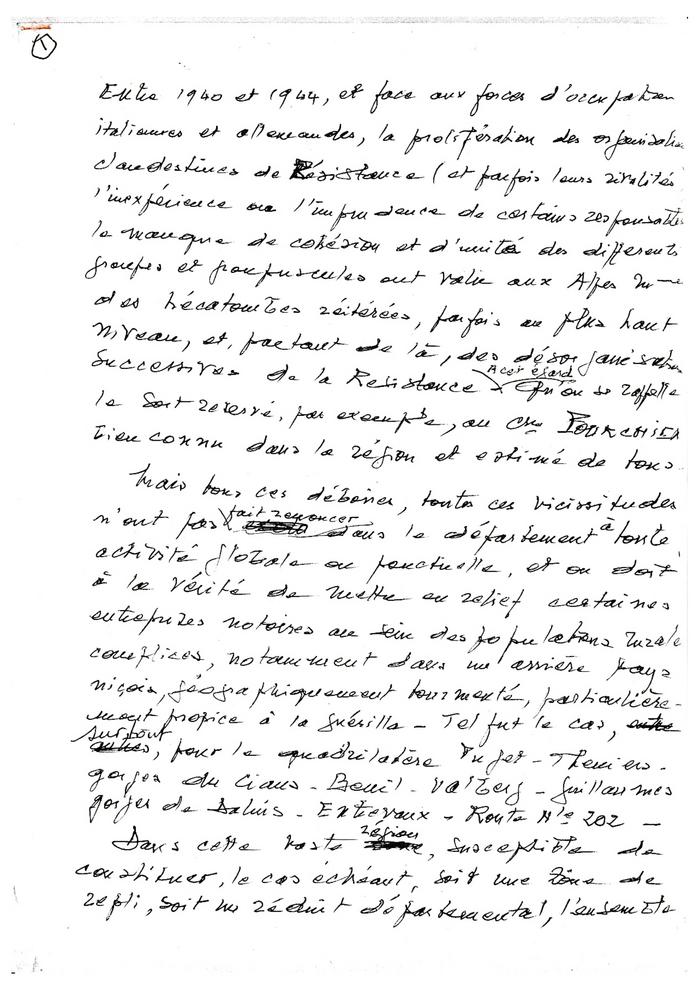 1
Entre 1940 et 1944, et face aux forces d'occupation
italiennes et allemandes, la prolifération des organisation
clandestines de Résistance (et parfois leurs rivalités
l'inexpérience ou l'imprudence de certains responsables
le manque de cohésion et d'unité des différents
groupes et groupuscules ont valu aux Alpes Mmes
des hécatombes réitérées, parfois au plus haut
niveau, et, partant de là, des désorganisation
A cet égard
successives de la Resistance - qu'on se rappelle
le sort réservé, par exemple, au Cne
bien connu dans la région et estimé de tous
Mais tous ces déboires, toutes ces vicissitudes
fait renoncer
n'ont pas dans le département à toute
activité globale ou ponctuelle, et on doit
à la vérité de mettre en relief certaines
entreprises notoires au sein des populations rurale
complices, notamment dans un arrière pays
niçois, géographiquement tourmenté, particulière-
ment propice à la guérilla - Tel fut le cas,
surtout
, pour le quadrilatère Puget - Theniers -
gorges du Cians - Beuil - Valberg - Guillaumes
gorges de Daluis - Entrevaux - Route Nle 202 -
région
Dans cette vaste , susceptible de
constituer, le cas échéant, soit une zone de
repli, soit un réduit départemental, l'ensemble